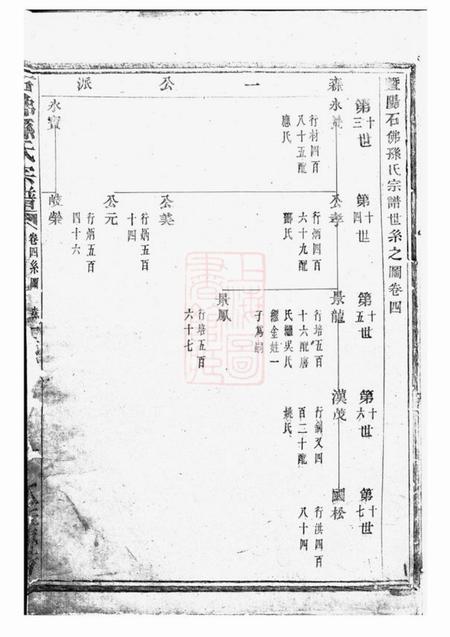 暨陽石佛孫氏宗譜世系之圖卷四
第十三世
第十四世
第十五世
第十六世
第十七世
森一公派
永
行材四百
八十五配
應氏
公孝
行炳四百
六十九配
酈氏
景龍
行培五百
十六配唐
氏繼吳氏
繼金姓一
子為嗣
漢茂
行錫又四
百二十配
姚氏
國松
行洪四百
八十四
景鳳
行培五百
六十七
公美
行炳五百
十四
公元
行炳五百
四十六
永寶
公榮
孫氏宗譜
卷四系圖
上海圖書館藏